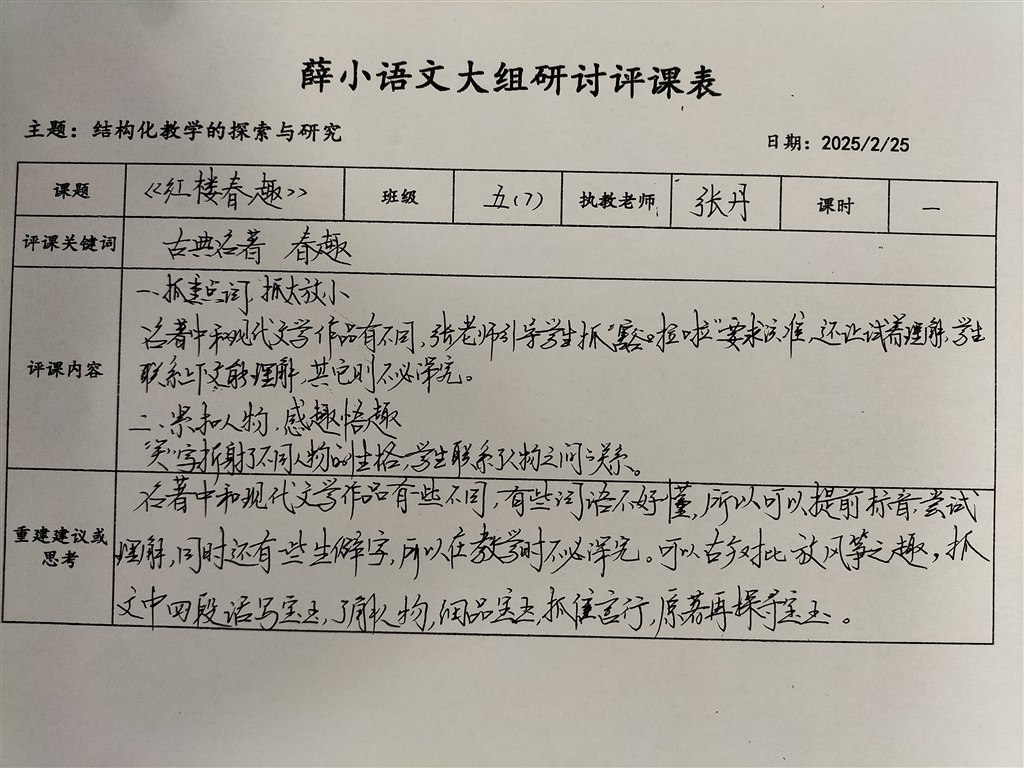 薛小语文大组研讨评课表
主题：结构化教学的探索与研究 日期：2025/2/25
课题 《红楼春趣》 班级 五（7） 执教老师 张丹 课时 一
评课关键词 古典名著 春趣
评课内容
一、抓重点词，抓大放小
名著中和现代文学作品有不同，张老师引导学生抓“豁啦啦”要求读准，还让试着理解，学生
联系上下文能理解，其它则不必深究。
二、紧扣人物，感趣悟趣
“笑”字折射了不同人物的性格，学生联系了人物之间关系。
重建建议或思考
名著中和现代文学作品有一些不同，有些词语不好懂，所以可以提前标音，尝试
理解，同时还有一些生僻字，所以在教学时不必深究。可以古今对比放风筝之趣，抓
文中四段话写宝玉，了解人物，细品宝玉，抓住言行，原著再探寻宝玉。